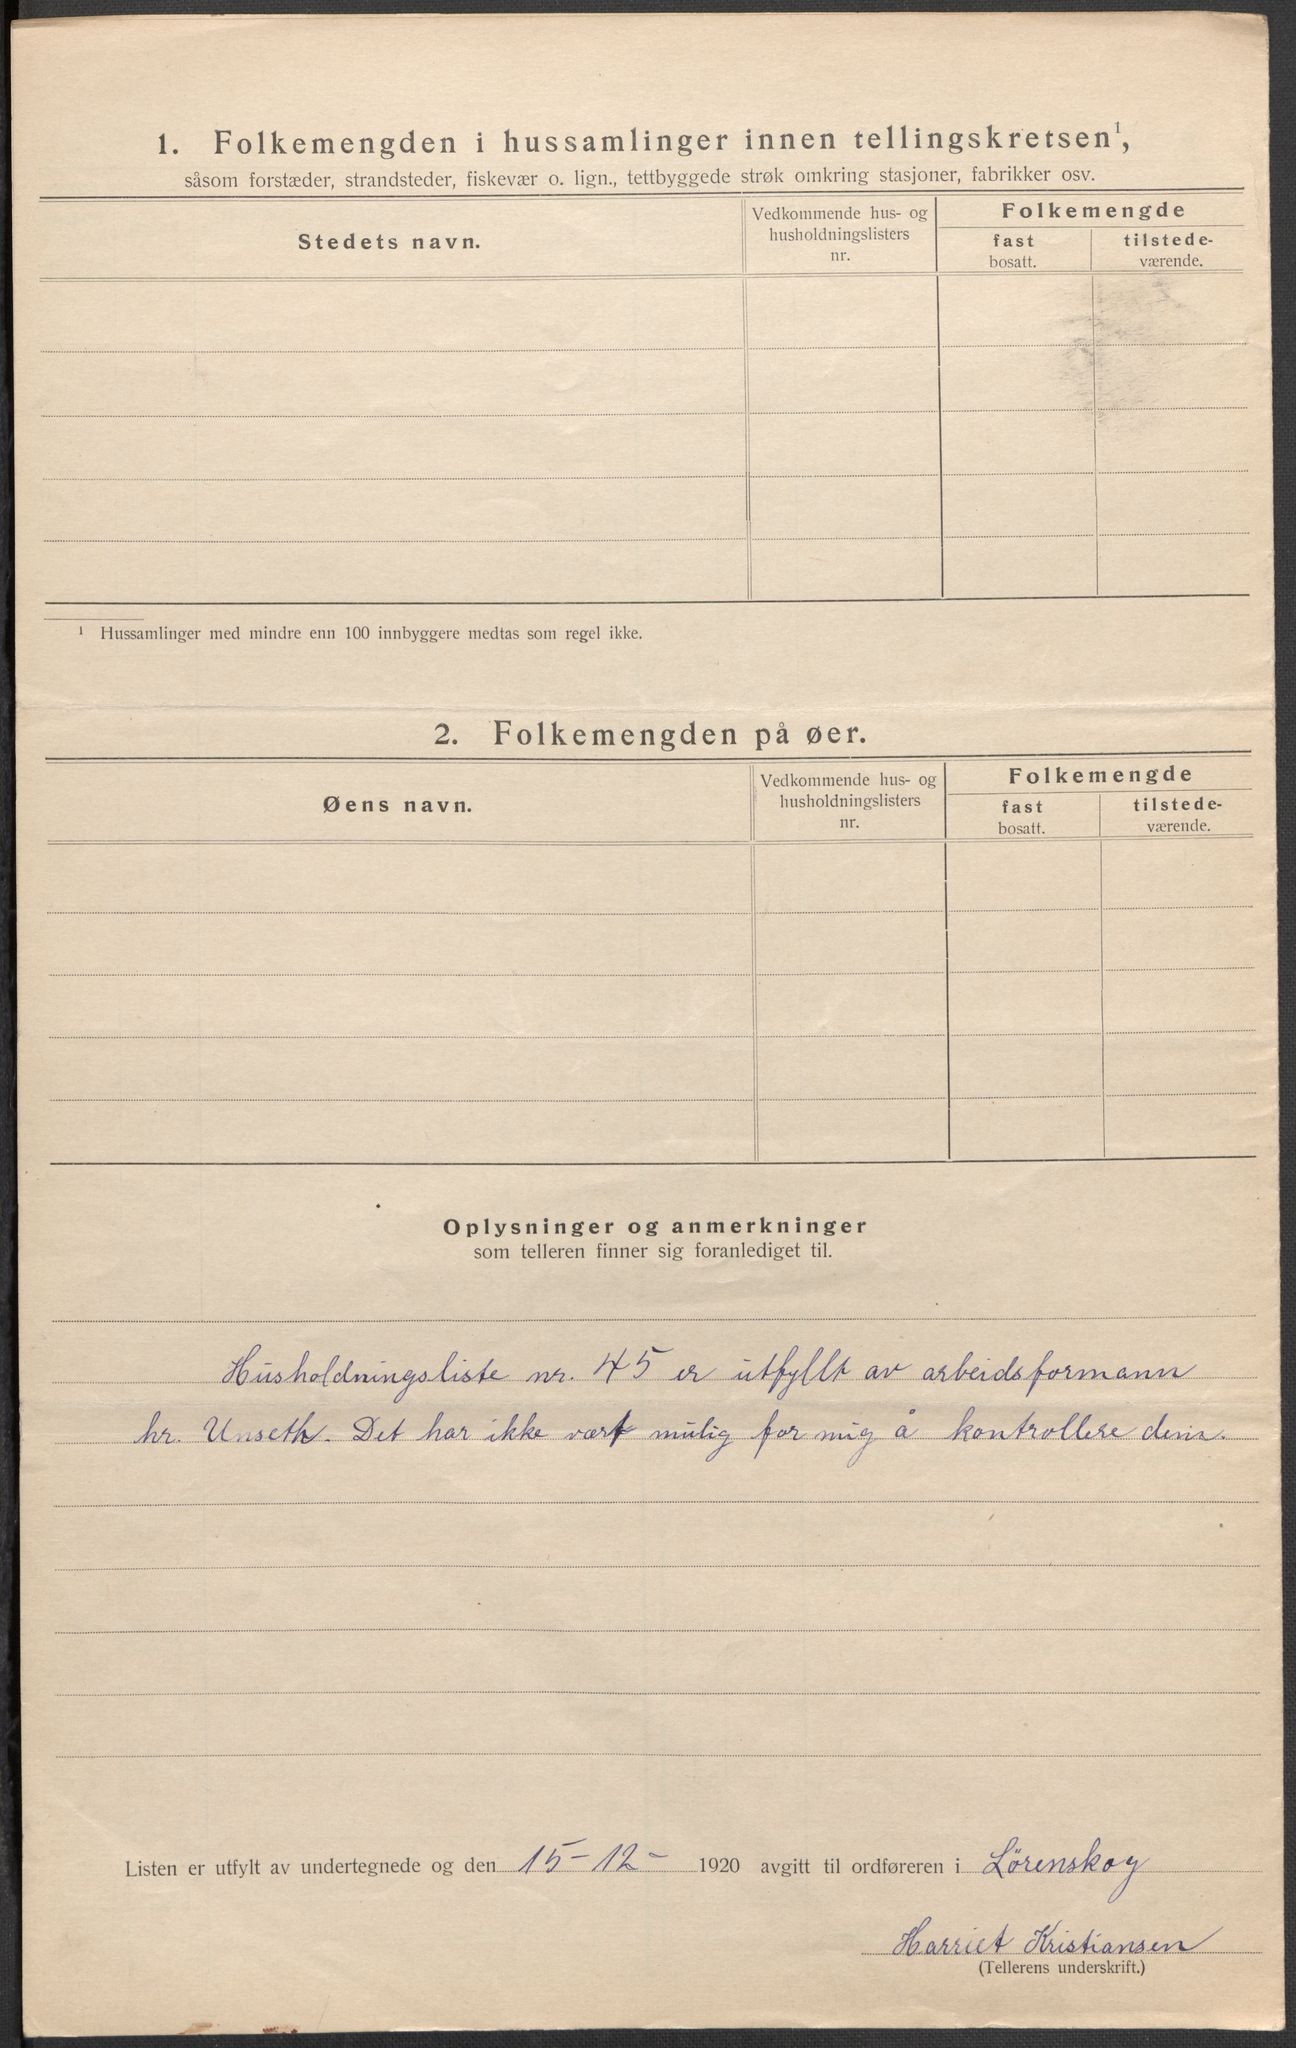 1. Folkemengden i hussamlinger innen tellingskretsen¹,
såsom forstæder, strandsteder, fiskevær o. lign., tettbyggede strøk omkring stasjoner, fabrikker osv.
Stedets navn.
Vedkommende hus- og
husholdningslisters
nr.
Folkemengde
fast
bosatt.
tilstede-
værende.
¹ Hussamlinger med mindre enn 100 innbyggere medtas som regel ikke.
2. Folkemengden på øer.
Øens navn.
Vedkommende hus- og
husholdningslisters
nr.
Folkemengde
fast
bosatt.
tilstede-
værende.
Oplysninger og anmerkninger
som telleren finner sig foranlediget til.
Husholdningsliste nr. 45 er utfyllt av arbeidsformann
hr. Unseth. Det har ikke vært mulig for mig å kontrollere dem.
Listen er utfylt av undertegnede og den 15-12- 1920 avgitt til ordføreren i Lørenskog
Harriet Kristiansen
(Tellerens underskrift.)